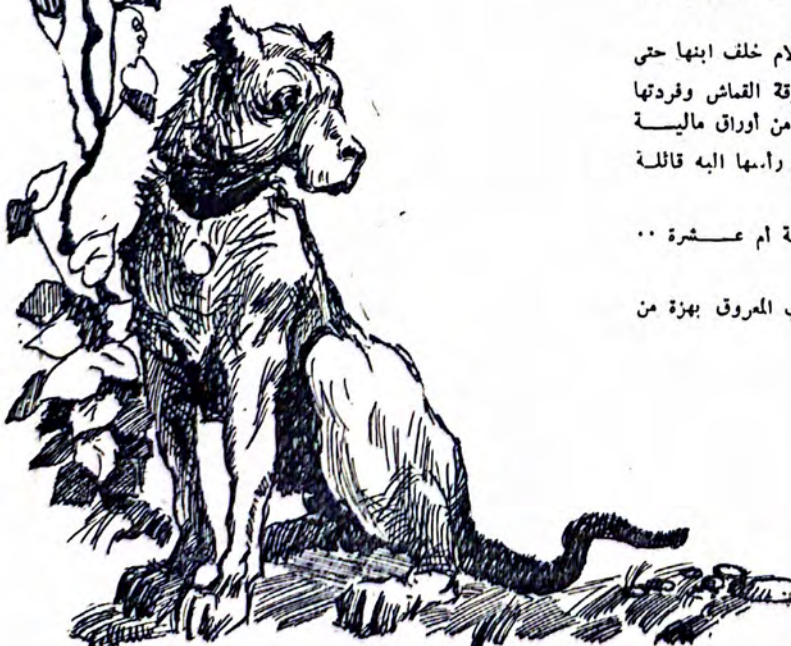 لام خلف ابنها حتى
رقة القماش وفردتها
من أوراق ماليـــة
رأسها اليه قائلـة
ة أم عـــشرة ..
ب المعروق بهزة من